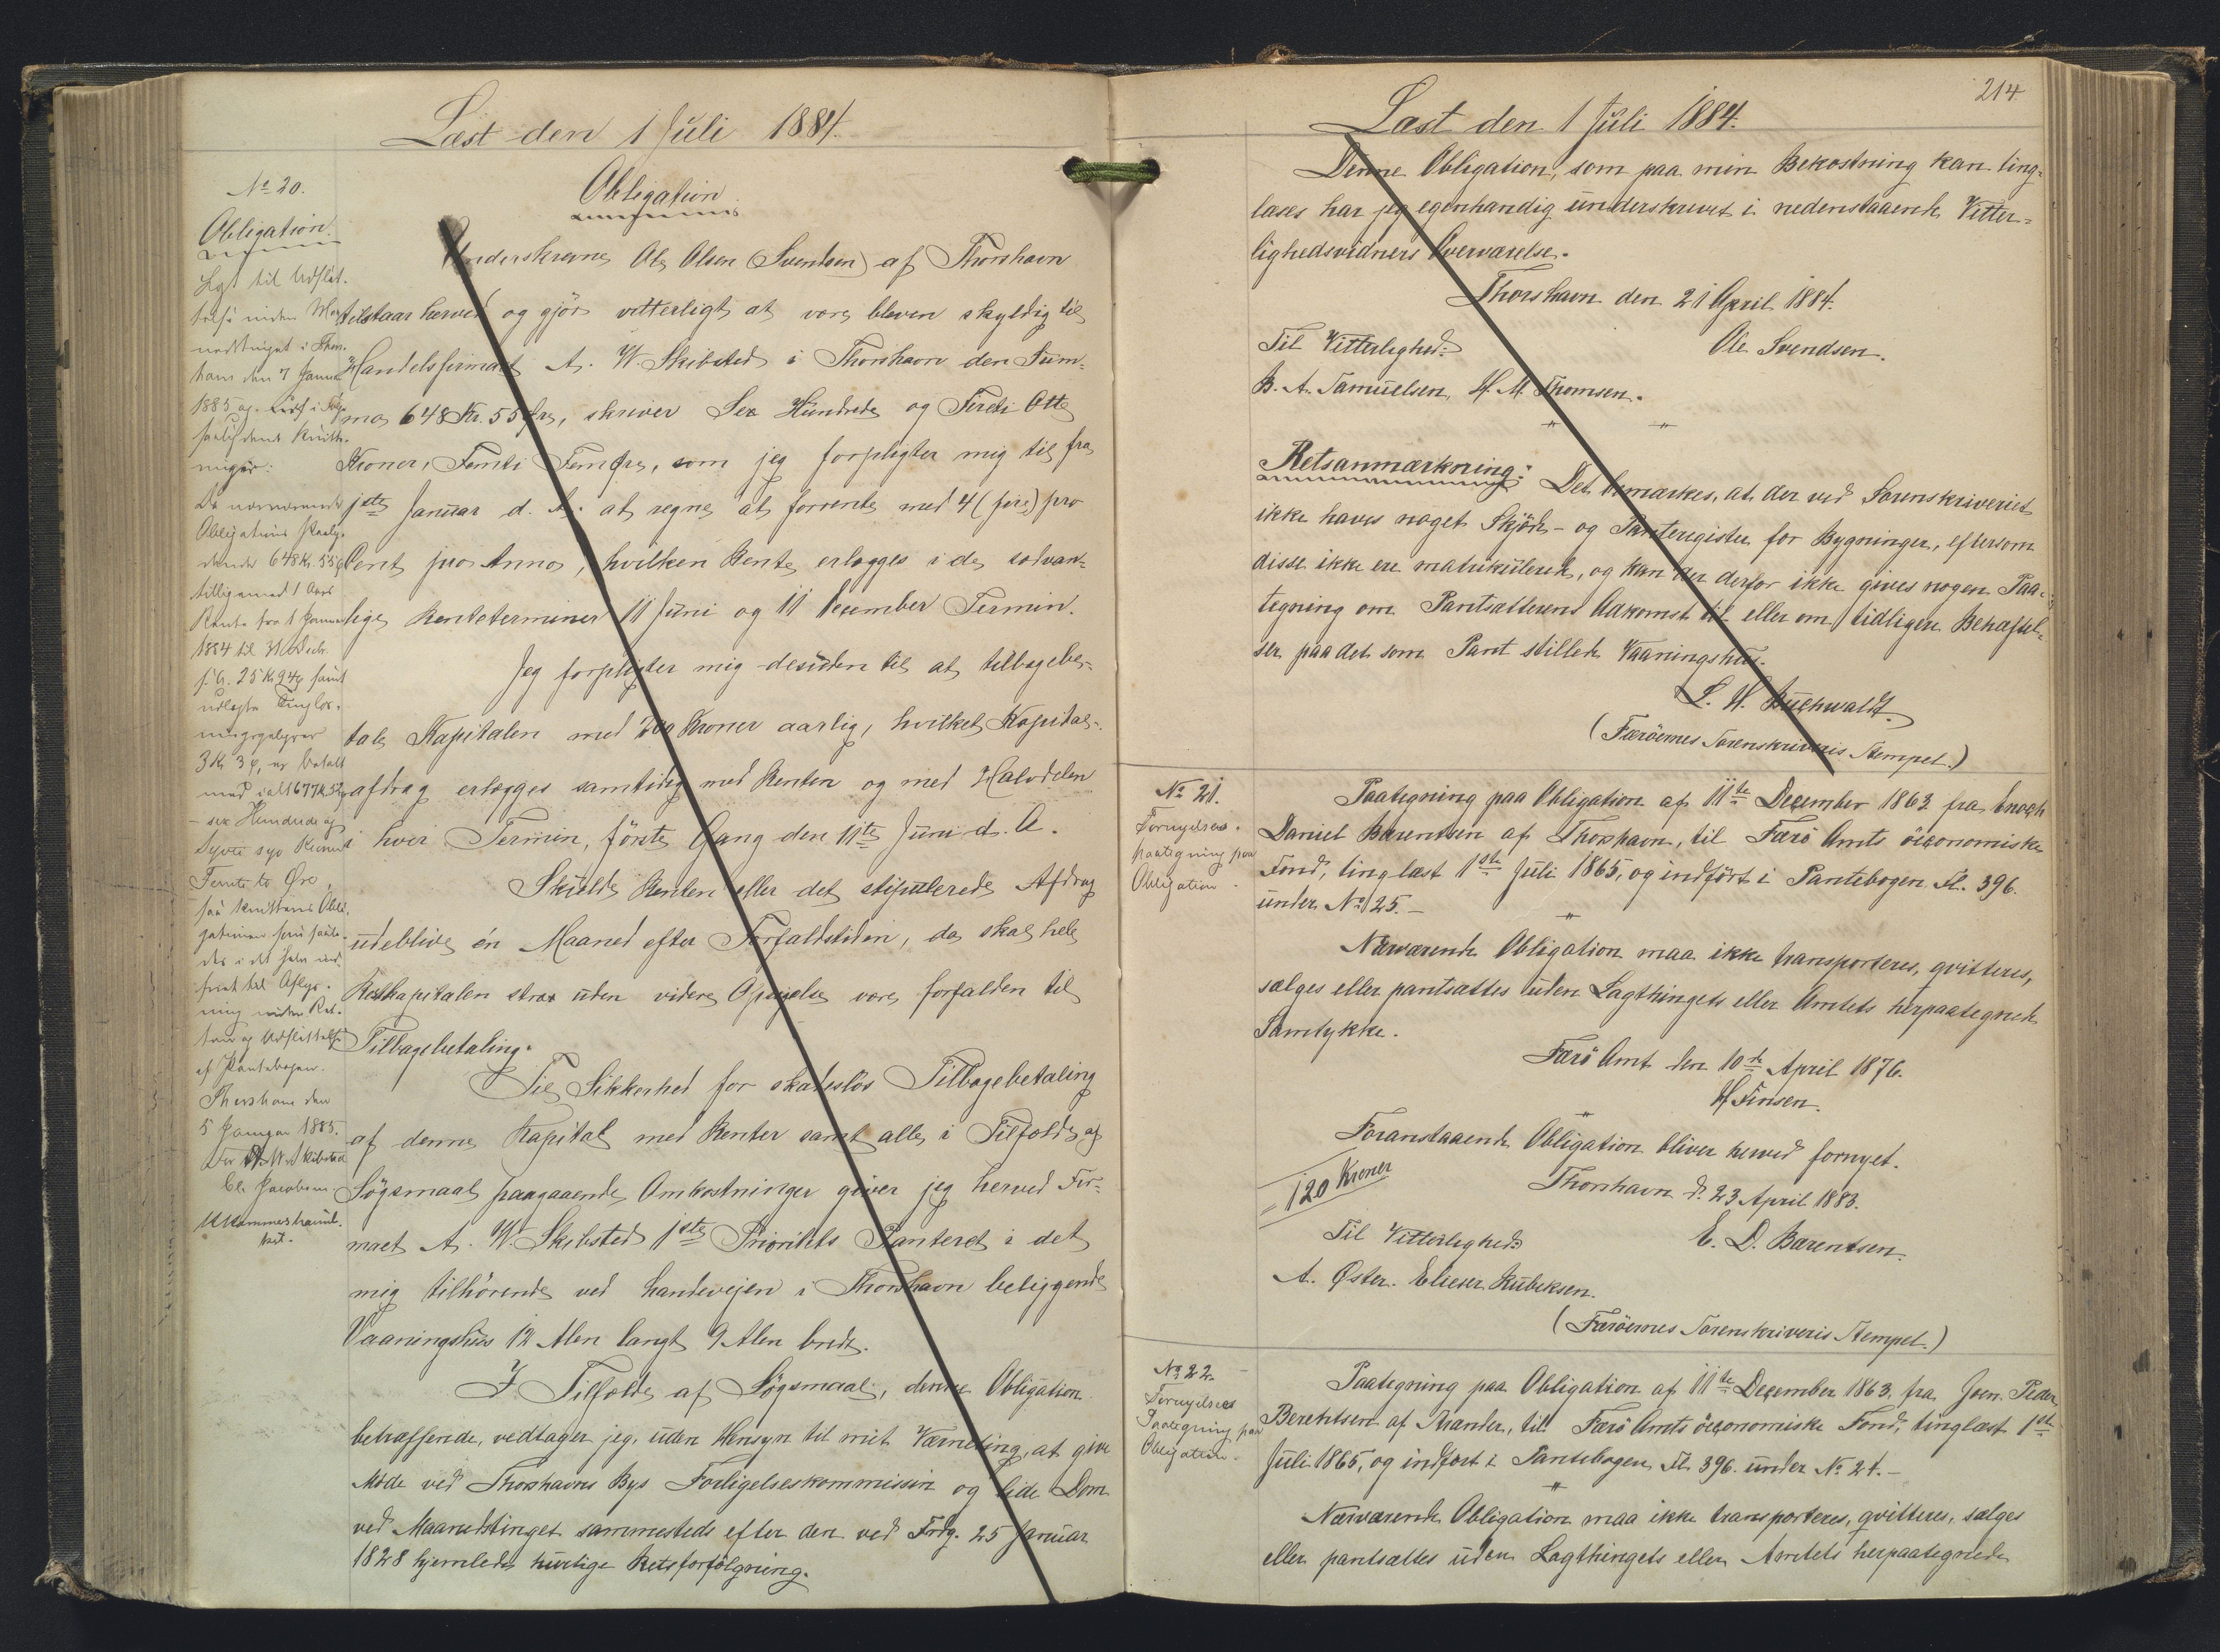 Læst den 1 Juli 1884.
No 20.
Obligation.
Lyst til Udslet-
telse inden Maa-
nedstinget i Thors-
havn den 7 Januar
1885 og
Kvitte-
ringer:
Da nærværende
Obligations Paaly-
dende 648 Kr. 55 ø
tilligemed 1 Aars
Rente fra 1 Januar
1884 til 31 Decbr.
s. A. 25 Kr 94 ø samt
udlagte Tinglæs-
ningsgebyrer
3 Kr 3 ø, er betalt
med ialt 677 Kr. 52 ø
- sex Hundrede og
Syvti syv Kroner
Femti to Øre
saa kvitteres Obli-
gationen som saale-
des i det Hele ind-
friet til Aflys-
ning inden Ret-
ten og Udslettelse
af Pantebogen.
Thorshavn den
5 Januar 1885.
For A. W. Skibsted
Cl. Jacobsen.
M Kommershamb.
Obligation
Underskrevne Ole Olsen (Svendsen) af Thorshavn
tilstaar herved og gjör vitterligt at være bleven skyldig til
Handelsfirmaet A. W. Skibsted i Thorshavn den Sum-
ma 648 Kr. 55 Øre, skriver Sex Hundrede og Fireti Otte
Kroner, Femti Fem Øre, som jeg forpligter mig til fra
1ste Januar d. A. at regne at forrente med 4 (fire) pro
Cent pro Anno, hvilken Rente erlægges i de sædvan-
lige Renteterminer 11 Juni og 11 December Termin.
Jeg forpligter mig desuden til at tilbagebe-
tale Kapitalen med 200 Kroner aarlig, hvilket Kapital-
afdrag erlægges samtidig med Renten og med Halvdelen
i hver Termin, förste Gang den 11te Juni d. A.
Skulde Renten eller det stipulerede Afdrag
udeblive én Maaned efter Forfaldstiden, da skal hele
Restkapitalen strax uden videre Opsigelse være forfalden til
Tilbagebetaling.
Til Sikkerhed for skadeslös Tilbagebetaling
af denne Kapital med Renter samt alle i Tilfælde af
Søgsmaal paagaaende Omkostninger giver jeg herved Fir-
maet A. W. Skibsted 1ste Prioritets Panteret i det
mig tilhörende ved Landevejen i Thorshavn beliggende
Vaaningshus 12 Alen langt 9 Alen bredt.
I Tilfælde af Søgsmaal, denne Obligation
betræffende, vedtager jeg, uden Hensyn til mit Værneting, at give
Møde ved Thorshavns Bys Forligelseskommission og lide Dom
ved Maanedstinget sammesteds efter den ved Frdg. 25 Januar
1828 hjemlede hurtige Retsforfölgning.
214.
Læst den 1 Juli 1884.
Denne Obligation, som paa min Bekostning kan ting-
læses har jeg egenhændig underskrevet i nedenstaaende Vitter-
lighedsvidners Overværelse.
Thorshavn den 21 April 1884.
Til Vitterlighed:
Ole Svendsen.
B. A. Samuelsen, H. M. Thomsen.
Retsanmærkning: Det bemærkes, at der ved Sorenskriveriet
ikke haves noget Skjöde- og Panteregister for Bygninger, eftersom
disse ikke ere matrikulerede, og kan der derfor ikke gives nogen Paa-
tegning om Pantsætterens Adkomst til eller om tidligere Behæftel-
ser paa det som Pant stillede Vaaningshus.
L. H. Buchwaldt.
(Færöernes Sorenskriveris Stempel.)
No 21.
Fornyelses-
paategning paa
Obligation.
Paategning paa Obligation af 11te December 1863 fra Enoch
Daniel Bærentsen af Thorshavn, til Færö Amts öconomiske
Fond, tinglæst 1ste Juli 1865, og indfört i Pantebogen Fl. 396.
under No 25.-
Nærværende Obligation maa ikke transporteres, qvitteres,
sælges eller pantsættes uden Lagthingets eller Amtets herpaategnede
Samtykke.
Færö Amt den 10de April 1876.
H Finsen.
Foranstaaende Obligation bliver herved fornyet.
= 120 Kroner
Thorshavn d. 23 April 1883.
Til Vitterlighed:
E. D. Bærentsen.
A. Øster. Elieser Rubeksen.
(Færöernes Sorenskriveris Stempel.)
No 22.
Fornyelses
Paategning paa
Obligation.
Paategning paa Obligation af 11te December 1863, fra Joen Peder
Berentsen af Arander, til Færö Amts öconomiske Fond, tinglæst 1ste
Juli 1865, og indfört i Pantebogen Fl. 396. under No 24.-
Nærværende Obligation maa ikke transporteres, qvitteres, sælges
eller pantsættes uden Lagthingets eller Amtets herpaategnede